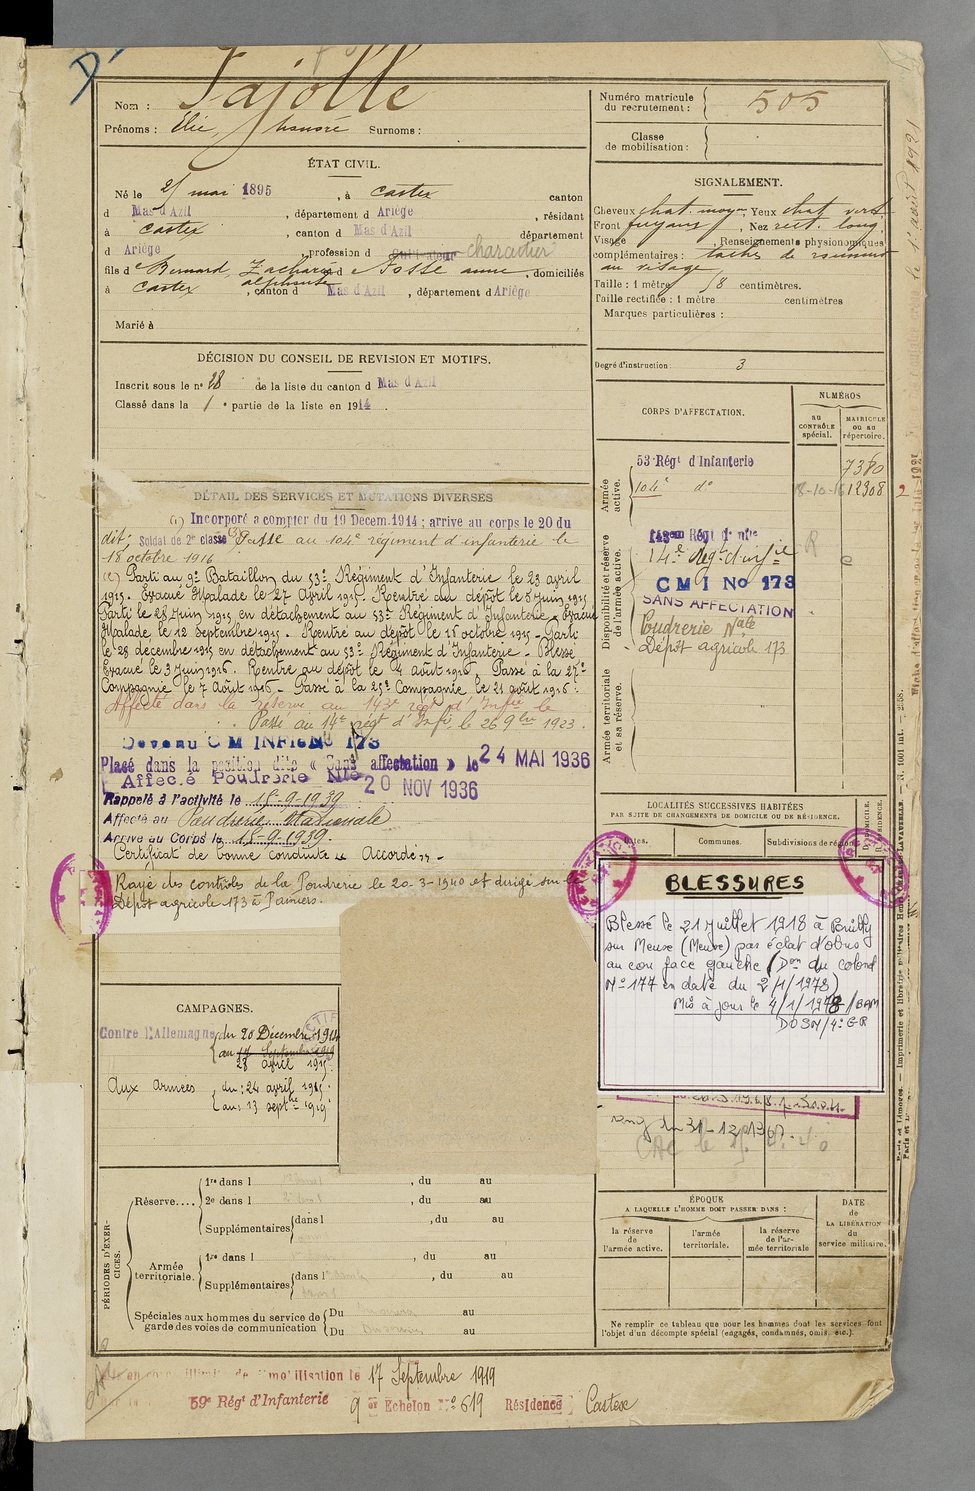 Nom : Fajolle
Prénoms : Elie, Honoré Surnoms :
ÉTAT CIVIL.
Né le 21 mai 1895, à Castex canton
d Mas d'Azil, département d Ariège, résidant
à Castex, canton d Mas d'Azil département
d Ariège, profession d Cultivateur charcutier
fils d e Bernard, Zacharie Alphonse et d Fosse Anne, domiciliés
à Castex, canton d Mas d'Azil, département d Ariège
Marié à
DÉCISION DU CONSEIL DE REVISION ET MOTIFS.
Inscrit sous le n° 28 de la liste du canton d Mas d'Azil
Classé dans la 1e partie de la liste en 1914.
DÉTAIL DES SERVICES ET MUTATIONS DIVERSES
(1) Incorporé a compter du 19 Decem. 1914 ; arrive au corps le 20 du
dit; Soldat de 2e classe (3) Passé au 104e régiment d'infanterie le
18 octobre 1916
(2) Parti au 9e Bataillon du 53e Régiment d'Infanterie le 23 avril
1915. Evacué Malade le 27 Avril 1915. Rentré au dépôt le 8 Juin 1915
Parti le 28 Juin 1915 en détachement au 53e Régiment d'Infanterie - Evacué
Malade le 12 Septembre 1915. Rentré au dépôt le 15 octobre 1915 - Parti
le 29 décembre 1915 en détachement au 53e Régiment d'Infanterie - Blessé
Evacué le 3 Juin 1916. Rentré au dépôt le 4 août 1916. Passé à la 27e
Compagnie le 7 Août 1916 - Passé à la 25e Compagnie le 21 août 1916.
Affecté dans la réserve au 143e régt d'Infie le
Passé au 14e régt d'Infie le 26 9bre 1923.
Devenu C M INFie No 173
Placé dans la position dite « Sans affectation » le 24 MAI 1936
Affecté Poudrerie Nle 20 NOV 1936
Rappelé à l'activité le 15-9-1939
Affecté au Poudrerie Nationale
Arrivé au Corps le 15-9-1939.
Certificat de bonne conduite "Accordé" -
Rayé des contrôles de la Poudrerie le 20-3-1940 et dirigé sur le
Dépôt agricole 173 à Pamiers.
CAMPAGNES.
Contre l'Allemagne du 20 Décembre 1914
au 17 Septembre 1919
23 avril 1915
Aux armées du : 24 avril 1915
au : 13 septbre 1919
PÉRIODES D'EXERCICES.
Réserve....
1re dans l , du au
2e dans l , du au
Supplémentaires dans l , du au
Armée territoriale.
1re dans l , du au
Supplémentaires dans l , du au
Spéciales aux hommes du service de garde des voies de communication
Du au
Du au
mobilisation le 17 Septembre 1919
59e Régt d'Infanterie 9 Echelon No 619 Résidence Castex
Numéro matricule du recrutement : 505
Classe de mobilisation :
SIGNALEMENT.
Cheveux chat. moyen Yeux chat vert
Front fuyant, Nez rect. long,
Visage , Renseignements physionomiques
complémentaires : taches de rousseur
au visage
Taille : 1 mètre 58 centimètres.
Taille rectifiée : 1 mètre centimètres
Marques particulières :
Degré d'instruction : 3
CORPS D'AFFECTATION.
NUMÉROS
au CONTRÔLE spécial.
MATRICULE ou au répertoire.
Armée active.
53 Régt d'Infanterie 7380
104e do 18-10-16 12308 2
Disponibilité et réserve de l'armée active.
143em Régt d'Infie
14e Régt d'infie
C M I No 173
SANS AFFECTATION
Poudrerie Nale
Dépôt agricole 173
Armée territoriale et sa réserve.
LOCALITÉS SUCCESSIVES HABITÉES
PAR SUITE DE CHANGEMENTS DE DOMICILE OU DE RÉSIDENCE.
Dates. Communes. Subdivisions de région
D. DOMICILE. R. RÉSIDENCE.
BLESSURES
Blessé le 21 juillet 1918 à Brilly
sur Meuse (Meuse) par éclat d'obus
au cou face gauche (Don du colonel
N° 177 en date du 2/1/1978)
Mis à jour le 4/1/1978/BAM
DOSN/4e GR
31-12-1967.
ÉPOQUE
A LAQUELLE L'HOMME DOIT PASSER DANS :
la réserve de l'armée active.
l'armée territoriale.
la réserve de l'armée territoriale
DATE de LA LIBÉRATION du service militaire.
Ne remplir ce tableau que pour les hommes dont les services font
l'objet d'un décompte spécial (engagés, condamnés, omis, etc.).